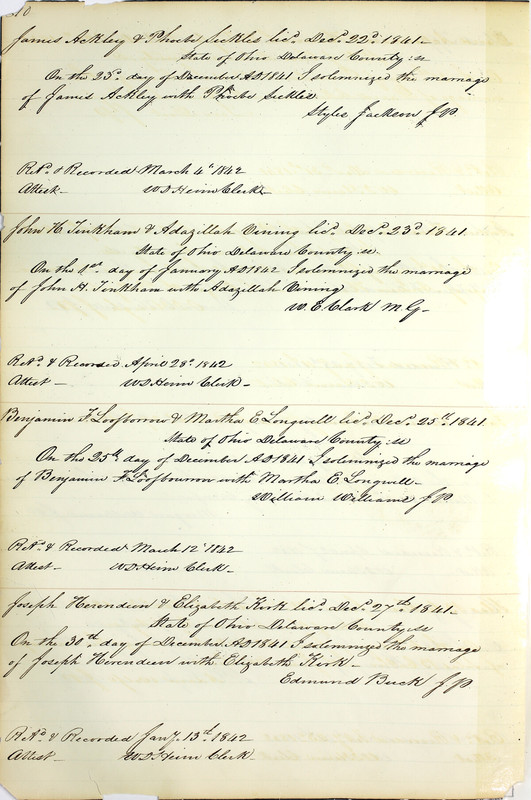 10
James Ackley & Phoebe Sickles licd. Decr. 22d. 1841.
State of Ohio Delaware County ss
On the 23d. day of December AD 1841 I solemnized the marriage
of James Ackley with Phoebe Sickles.
Styles Jackson J P.
Retd. & Recorded March 4th 1842
Attest. W D Heim Clerk
John H Tinkham & Adazillah Vining licd. Decr. 23d. 1841.
State of Ohio Delaware County ss
On the 1st. day of January AD 1842 I solemnized the marriage
of John H. Tinkham with Adazillah Vining
W. E. Clark M. G.
Retd. & Recorded April 28th. 1842
Attest W D Heim Clerk
Benjamin F. Loofborrow & Martha E Longwell licd. Decr. 25th. 1841.
State of Ohio Delaware County: ss
On the 25th day of December AD 1841 I solemnized the marriage
of Benjamin F Loofbourrow with Martha E. Longwell
William Williams J P.
Retd. & Recorded March 12th 1842
Attest W D Heim Clerk
Joseph Herendeen & Elizabeth Kirk licd. Decr. 27th. 1841
State of Ohio Delaware County ss
On the 30th. day of December AD 1841 I solemnized the marriage
of Joseph Herendeen with Elizabeth Kirk
Edmund Buck J P
Retd. & Recorded Jany. 13th. 1842
Attest W D Heim Clerk